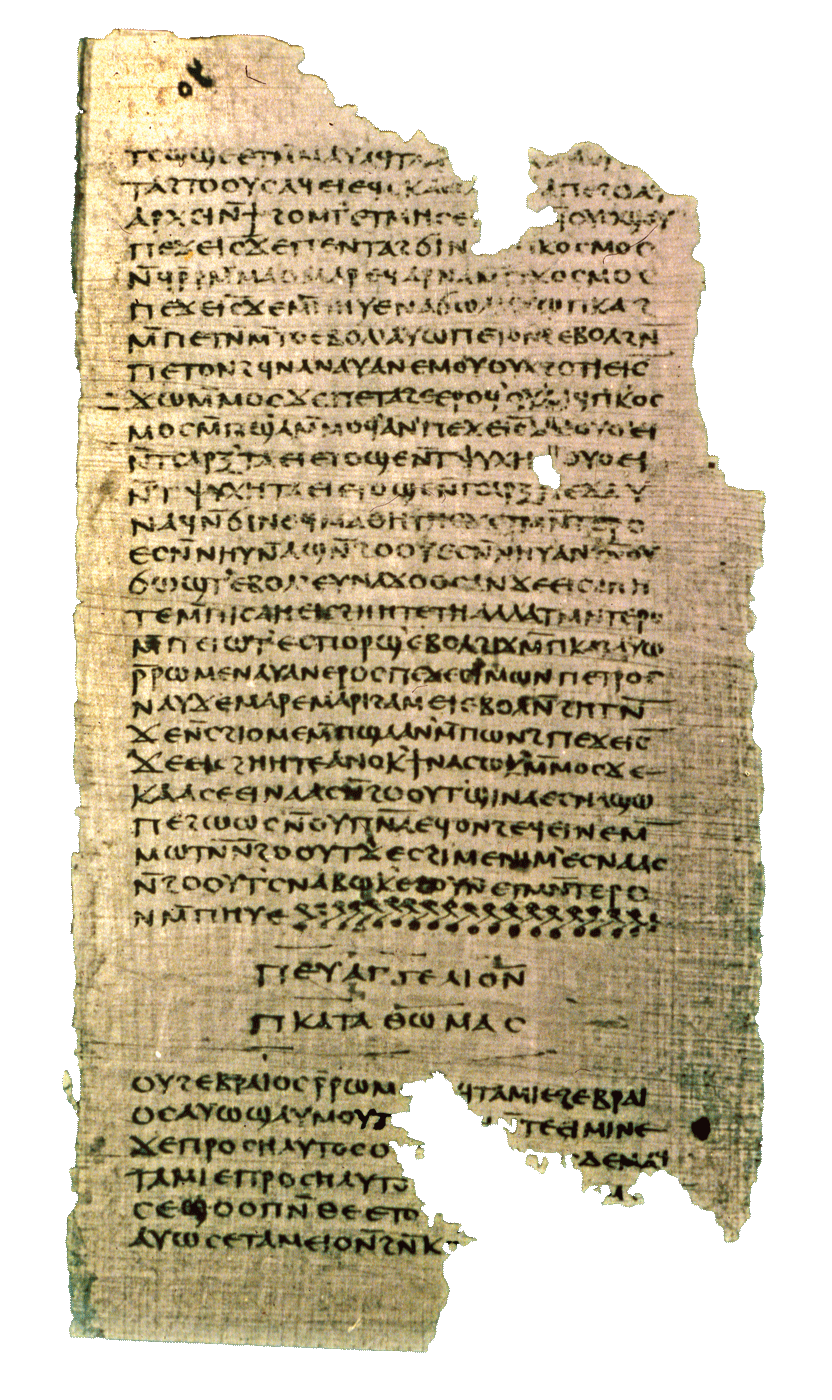 ⲧⲥⲱϣⲉ ⲉⲧⲙ̄ⲙⲁⲩ ⲁϥⲧⲁ
ⲧⲁϩⲧⲟⲟⲩⲥ ⲁϥⲉⲓ ⲉϥⲥⲕⲁⲉⲓ ⲁⲡⲉϩⲟ ⲁϥ
ⲁⲣⲭⲉⲓ ⲛ̄ϯ ϩⲟⲙⲧ ⲉⲧⲙⲏⲥⲉ ϥⲟⲩⲟϣⲟⲩ
ⲡⲉϫⲉ ⲓ̄ⲥ̄ ϫⲉ ⲡⲉⲛⲧⲁϩϭⲓⲛ ⲡⲕⲟⲥⲙⲟⲥ
ⲛ̄ϥⲣ̄ ⲣⲙ̄ⲙⲁⲟ ⲙⲁⲣⲉϥⲁⲣⲛⲁ ⲙ̄ⲡⲕⲟⲥⲙⲟⲥ
ⲡⲉϫⲉ ⲓ̄ⲥ̄ ϫⲉ ⲙ̄ⲡⲏⲩⲉ ⲛⲁϭⲱⲗ ⲁⲩⲱ ⲡⲕⲁϩ
ⲙ̄ⲡⲉⲧⲛ̄ⲙ̄ⲧⲟ ⲉⲃⲟⲗ ⲁⲩⲱ ⲡⲉⲧⲟⲛϩ ⲉⲃⲟⲗ ϩⲛ̄
ⲡⲉⲧⲟⲛϩ ϥⲛⲁⲛⲁⲩ ⲁⲛ ⲉⲙⲟⲩ ⲟⲩⲭ ϩⲟⲧⲓ ⲉⲓ̄ⲥ̄
ϫⲱ ⲙ̄ⲙⲟⲥ ϫⲉ ⲡⲉⲧⲁϩⲉ ⲉⲣⲟϥ ⲟⲩⲁⲁϥ ⲡⲕⲟⲥ
ⲙⲟⲥ ⲙ̄ⲡϣⲁ ⲙ̄ⲙⲟϥ ⲁⲛ ⲡⲉϫⲉ ⲓ̄ⲥ̄ ϫⲉ ⲟⲩⲟⲉⲓ
ⲛ̄ⲧⲥⲁⲣⲝ ⲧⲁⲉⲓ ⲉⲧⲟϣⲉ ⲛ̄ⲧⲯⲩⲭⲏ ⲟⲩⲟⲉⲓ
ⲛ̄ⲧⲯⲩⲭⲏ ⲧⲁⲉⲓ ⲉⲧⲟϣⲉ ⲛ̄ⲧⲥⲁⲣⲝ ⲡⲉϫⲁⲩ
ⲛⲁϥ ⲛ̄ϭⲓ ⲛⲉϥⲙⲁⲑⲏⲧⲏⲥ ϫⲉ ⲧⲙⲛ̄ⲧⲉⲣⲟ
ⲉⲥⲛ̄ⲛⲏⲩ ⲛ̄ⲁϣ ⲛ̄ϩⲟⲟⲩ ⲉⲥⲛ̄ⲛⲏⲩ ⲁⲛ ϩⲛ̄ ⲟⲩ
ϭⲱϣⲧ ⲉⲃⲟⲗ ⲉⲩⲛⲁϫⲟⲟⲥ ⲁⲛ ϫⲉ ⲉⲓⲥϩⲏⲏ
ⲧⲉ ⲙ̄ⲡⲓⲥⲁ ⲏ ⲉⲓⲥϩⲏⲏⲧⲉ ⲧⲏ ⲁⲗⲗⲁ ⲧⲙⲛ̄ⲧⲉⲣⲟ
ⲙ̄ⲡⲉⲓⲱⲧ ⲉⲥⲡⲟⲣϣ ⲉⲃⲟⲗ ϩⲓϫⲙ̄ ⲡⲕⲁϩ ⲁⲩⲱ
ⲣ̄ⲣⲱⲙⲉ ⲛⲁⲩ ⲁⲛ ⲉⲣⲟⲥ ⲡⲉϫⲉ ⲥⲓⲙⲱⲛ ⲡⲉⲧⲣⲟⲥ
ⲛⲁⲩ ϫⲉ ⲙⲁⲣⲉ ⲙⲁⲣⲓϩⲁⲙ ⲉⲓ ⲉⲃⲟⲗ ⲛ̄ϩⲏⲧⲛ̄
ϫⲉ ⲛ̄ⲥϩⲓⲟⲙⲉ ⲙ̄ⲡϣⲁ ⲁⲛ ⲙ̄ⲡⲱⲛϩ ⲡⲉϫⲉ ⲓ̄ⲥ̄
ϫⲉ ⲉⲓⲥϩⲏⲏⲧⲉ ⲁⲛⲟⲕ ϯⲛⲁⲥⲱⲕ ⲙ̄ⲙⲟⲥ ϫⲉ
ⲕⲁⲁⲥ ⲉⲉⲓⲛⲁⲁⲥ ⲛ̄ϩⲟⲟⲩⲧ ϣⲓⲛⲁ ⲉⲥⲛⲁϣⲱ
ⲡⲉ ϩⲱⲱⲥ ⲛ̄ⲟⲩⲡ̄ⲛ̄ⲁ̄ ⲉϥⲟⲛϩ ⲉϥⲉⲓⲛⲉ ⲙ̄
ⲙⲱⲧⲛ̄ ⲛ̄ϩⲟⲟⲩⲧ ϫⲉ ⲥϩⲓⲙⲉ ⲛⲓⲙ ⲉⲥⲛⲁⲁⲥ
ⲛ̄ϩⲟⲟⲩⲧ ⲥⲛⲁⲃⲱⲕ ⲉϩⲟⲩⲛ ⲉⲧⲙⲛ̄ⲧⲉⲣⲟ
ⲛ̄ⲙ̄ⲡⲏⲩⲉ
ⲡⲉⲩⲁⲅⲅⲉⲗⲓⲟⲛ
ⲡⲕⲁⲧⲁ ⲑⲱⲙⲁⲥ
ⲟⲩϩⲉⲃⲣⲁⲓⲟⲥ ⲣ̄ⲣⲱⲙ ϥⲧⲁⲙⲓⲉ ϩⲉⲃⲣⲁⲓ
ⲟⲥ ⲁⲩⲱ ϣⲁⲩⲙⲟⲩⲧ ⲛ̄ⲧⲉⲉⲓⲙⲓⲛⲉ
ϫⲉ ⲡⲣⲟⲥⲏⲗⲩⲧⲟⲥ ⲟ ⲇⲉ ⲙⲁ
ⲧⲁⲙⲓⲉ ⲡⲣⲟⲥⲏⲗⲩⲧⲟ
ⲥⲉϣⲟⲟⲡ ⲛ̄ⲑⲉ ⲉⲧⲟ
ⲁⲩⲱ ⲥⲉⲧⲁⲙⲉⲓⲟ ⲛ̄ϩⲛ̄ⲕ